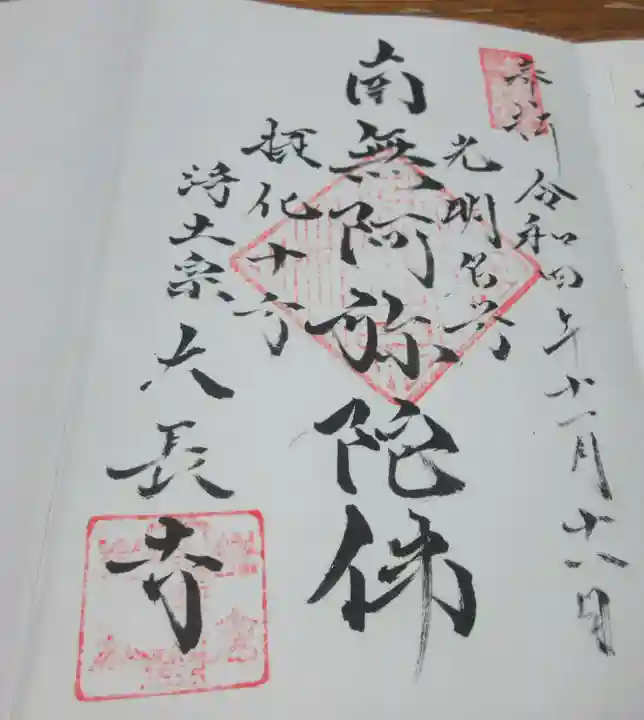 奉拝 令和四年十一月十六日
光明名号
南無阿弥陀佛
摂化十方
浄土宗 大長寺